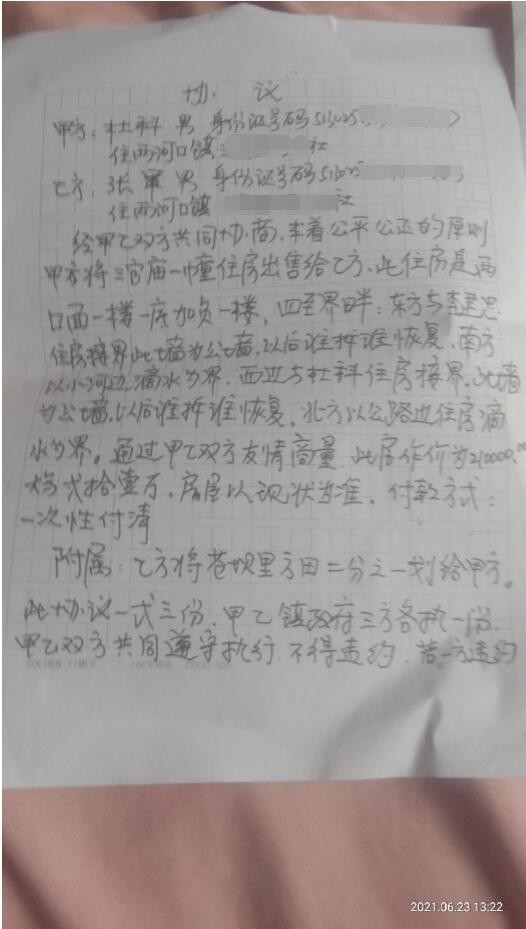 协 议
甲方：杜科 男 身份证号码513025
住两河口镇三 社
乙方：张軍男 身份证号码513025
住两河口镇 社
经甲乙双方共同协商，本着公平公正的原则
甲方将三官庙一幢住房出售给乙方，此住房是两
口面一楼一底加负一楼，四至界畔：东方与李君忠
住房接界此墙为公墙，以后谁拆谁恢复，南方
以小河边滴水为界，西边与杜科住房接界，此墙
为公墙，以后谁拆谁恢复，北方以公路边住房滴
水为界。通过甲乙双方友情商量 此房作价为210000.00
大写贰拾壹万，房屋以现状为准，付款方式：
一次性付清
附属：乙方将苍坝里方田二分之一划给甲方。
此协议一式三份，甲乙镇政府三方各执一份
甲乙双方共同遵守执行 不得违约，若一方违约
GOLDEN TIMES
2021.06.23 13:22